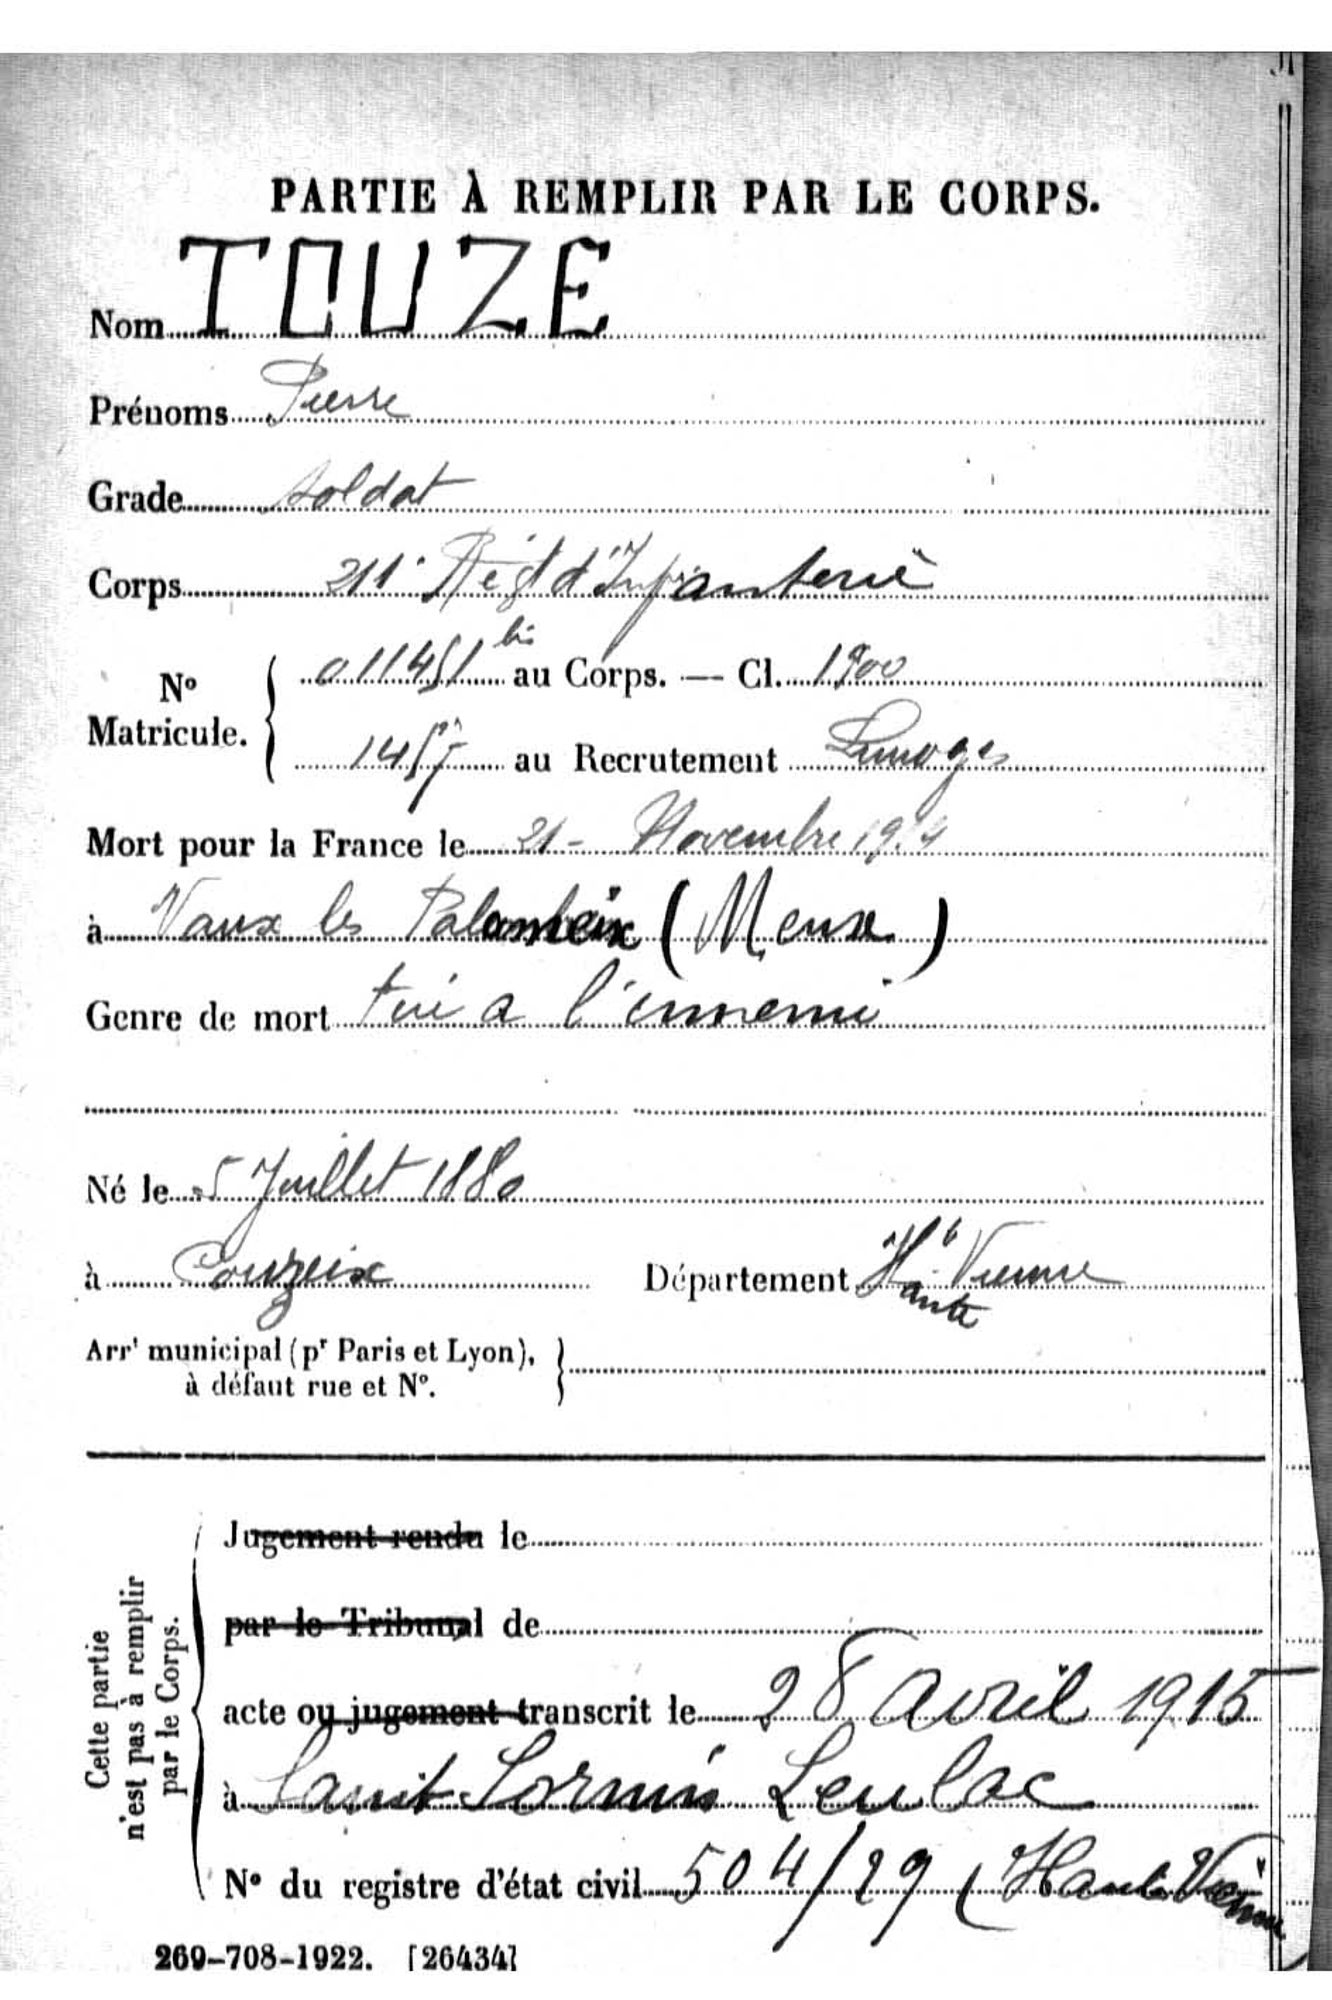 PARTIE À REMPLIR PAR LE CORPS.
Nom TOUZE
Prénoms Pierre
Grade soldat
Corps 211e Régt d'Infanterie
N° Matricule. 011451 bis au Corps. — Cl. 1900
1457 au Recrutement Limoges
Mort pour la France le 21 - Novembre 1914
à Vaux les Palameix (Meuse)
Genre de mort tué a l'ennemi
Né le 5 Juillet 1880
à Couzeix Département Hte Vienne
aute
Arrt municipal (pr Paris et Lyon),
à défaut rue et N°.
Cette partie
n'est pas à remplir
par le Corps.
Jugement rendu le
par le Tribunal de
acte ou jugement transcrit le 28 avril 1915
à Saint Sornin Leulac
N° du registre d'état civil 504/29 (Haute Vienne
269-708-1922. [26434]